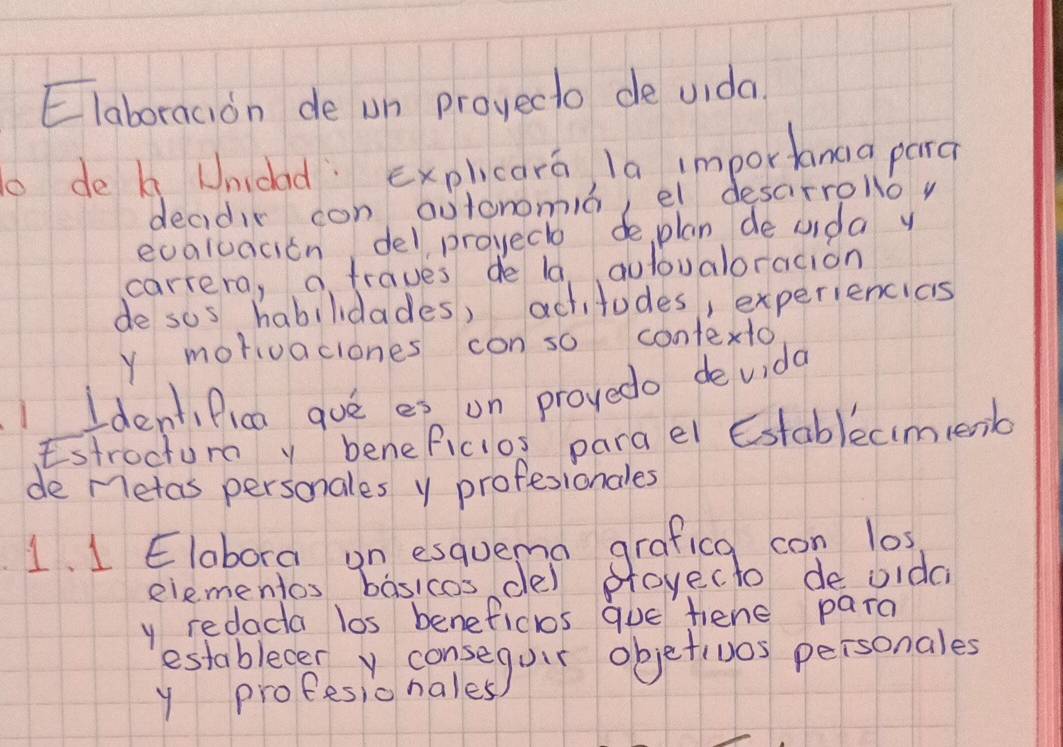 Elaboración de un proyecto de vida.
lo de la Unidad: Explicará la importancia para
decidir con autonomía, el desarrollo y
evaluación del proyecto de plan de vida y
carrera, a traves de la autovaloracion
de sus habilidades, actitudes, experiencias
y motivaciones con so contexto
.1 Identifica qué es un proyecto de vida
Estructura y beneficios para el Establécimiento
de Metas personales y profesionales
1.1 Elabora un esquema grafica con los
elementos básicos del proyecto de vida
y redacta los beneficios que tiene para
establecer y conseguir objetivos personales
y profesionales